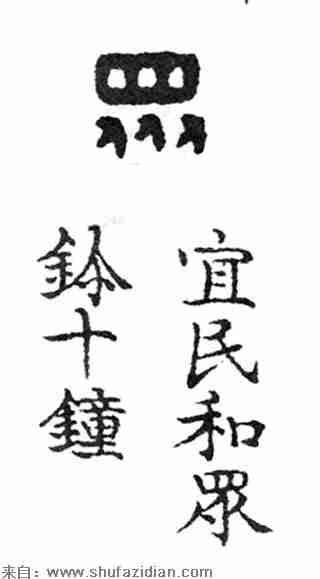 眾
宜民和眾
鉨十鐘
来自：www.shufazidian.com